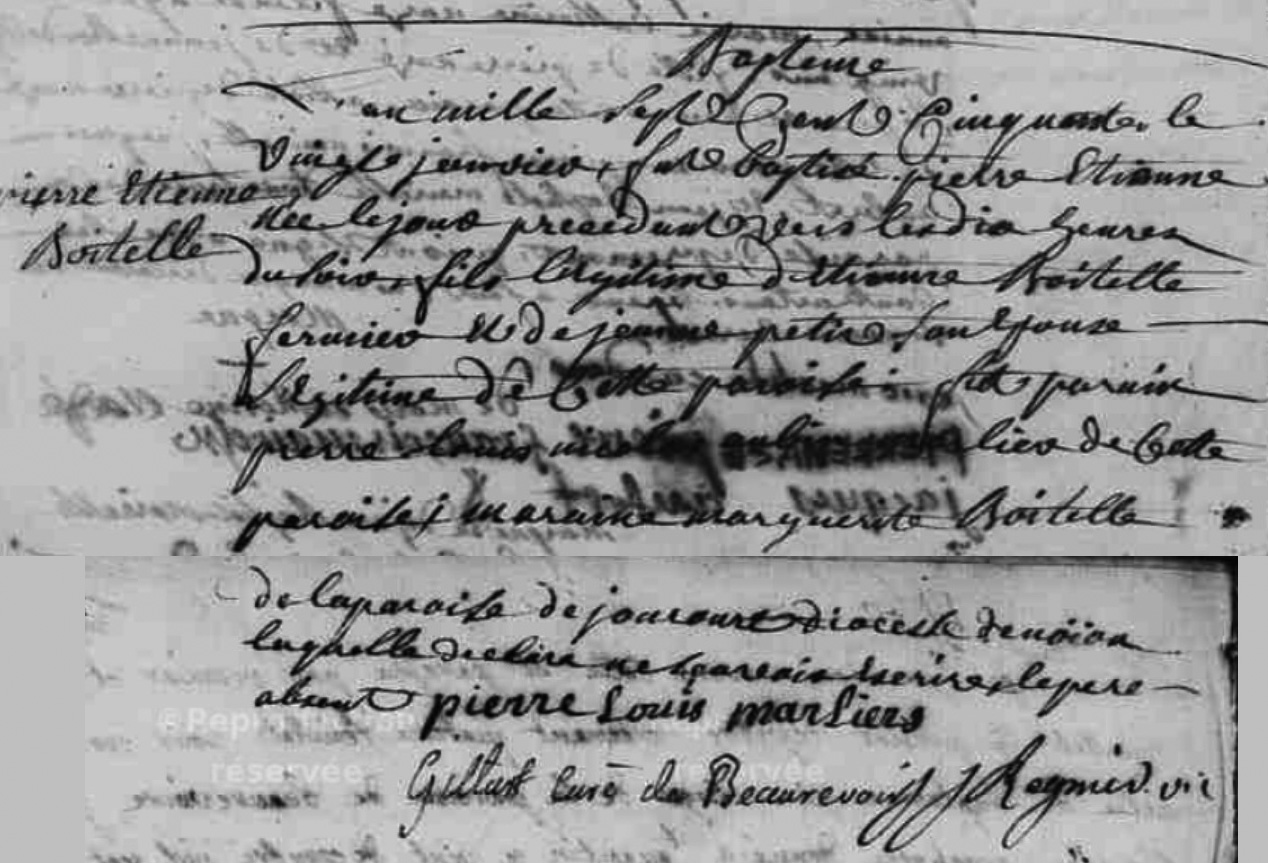 Baptême
L'an mille sept Cent Cinquante, le
vingt janvier, fut Baptisé pierre Etienne
pierre Etienne
Boitelle
née le jour precedant vers les dix heures
du soir, fils legitime d'etienne Boitelle
fermier et de jeanne petit son Epouse
Legitime de Cette paroisse, fut parain
pierre louis lier de Cette
paroisse; maraine marguerite Boitelle
de la paroisse de joncourt diocese de noïon
laquelle declare ne sçavoir Ecrire, le pere
absent pierre Louis marliers
Gillart curé de Beaurevoir J Regnier vic